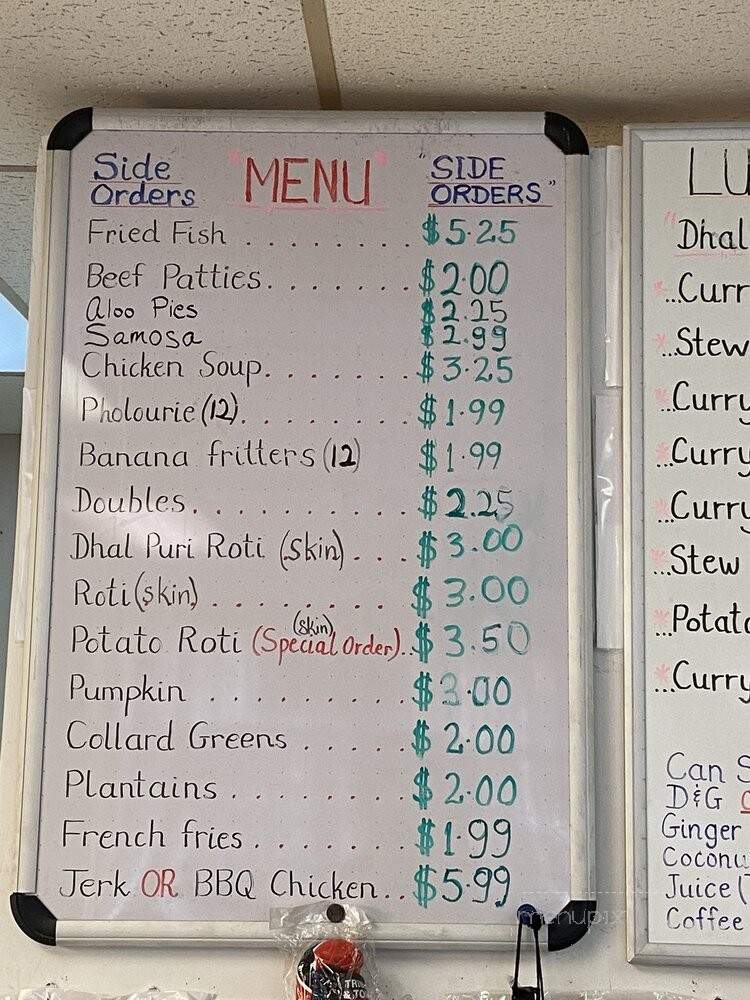 Side Orders "MENU" "SIDE ORDERS"
Fried Fish ........ $5.25
Beef Patties....... $2.00
Aloo Pies $2.25
Samosa $2.99
Chicken Soup....... $3.25
Pholourie (12)........ $1.99
Banana fritters (12) $1.99
Doubles.......... $2.25
Dhal Puri Roti (skin)... $3.00
Roti (skin)........ $3.00
Potato Roti (skin) (Special Order).. $3.50
Pumpkin ......... $3.00
Collard Greens ..... $2.00
Plantains ........ $2.00
French fries....... $1.99
Jerk OR BBQ Chicken.. $5.99
LU
"Dhal
...Curr
...Stew
...Curry
...Curry
...Curry
...Stew
...Potato
...Curry
Can S
D&G
Ginger
Coconu
Juice (
Coffee
menupix